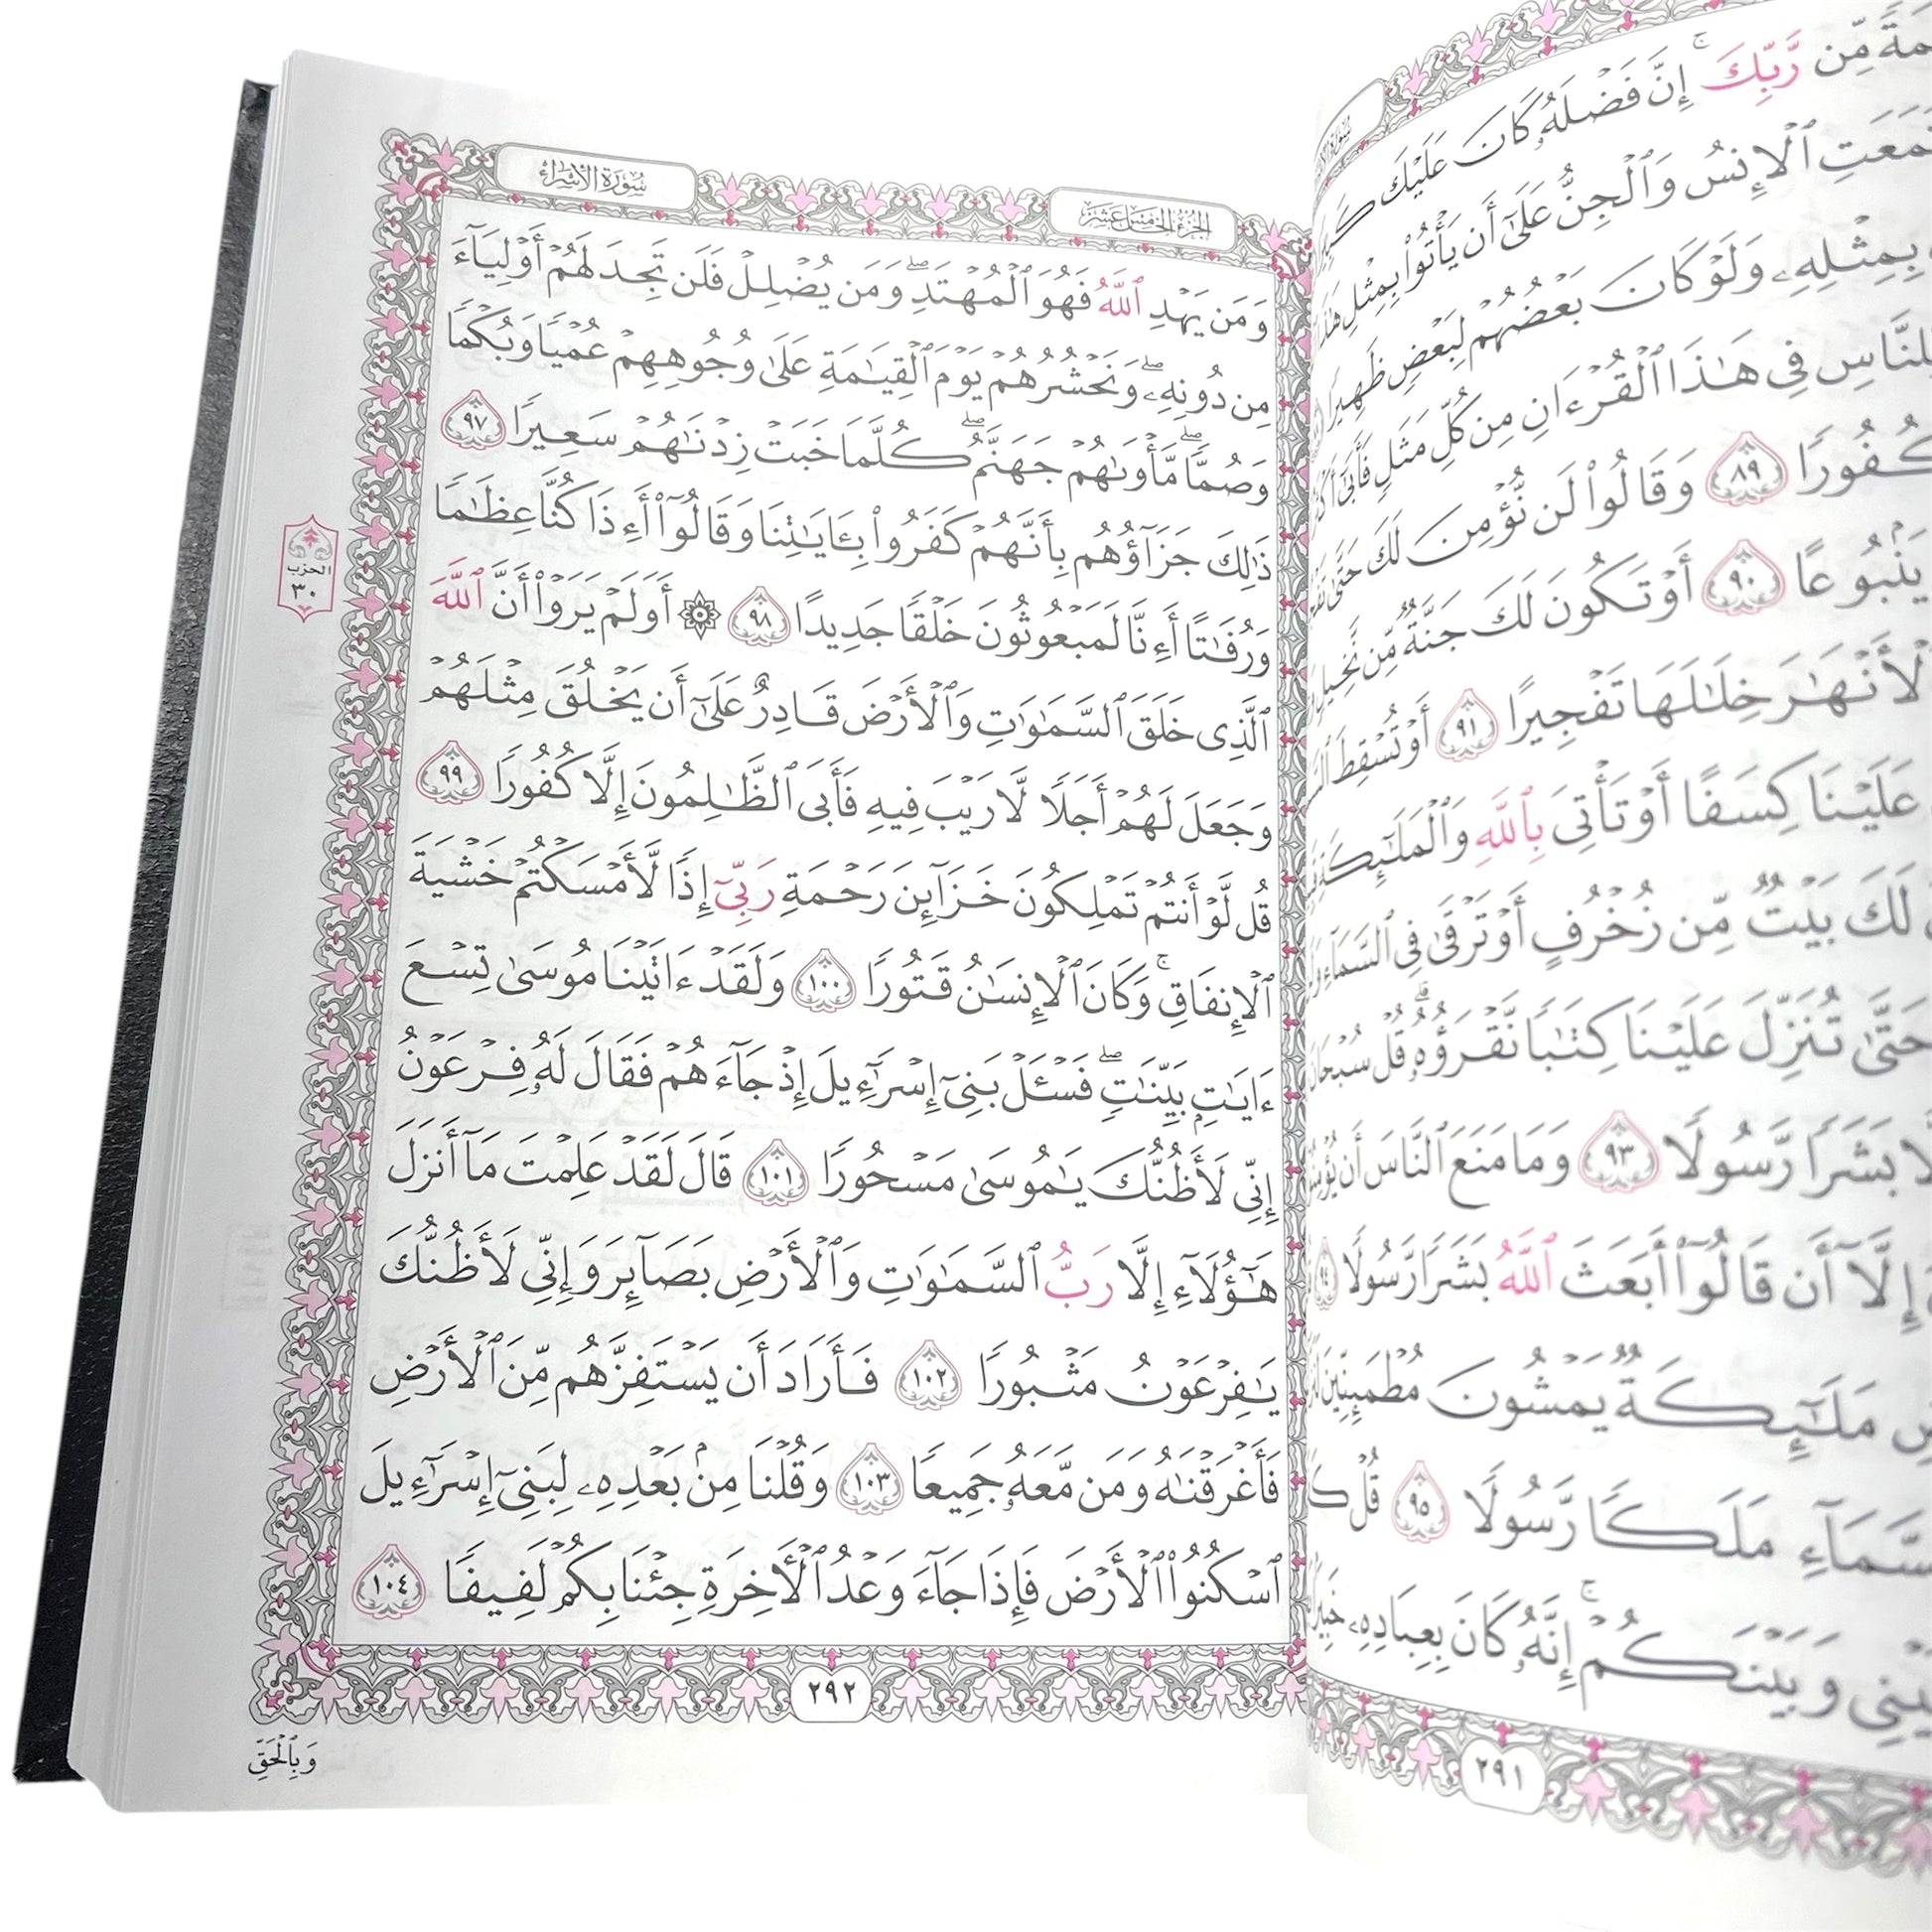 مَةً مِّن رَّبِّكَ ۚ إِنَّ فَضْلَهُۥ كَانَ عَلَيْكَ
ٱلْإِنسُ وَٱلْجِنُّ عَلَىٰٓ أَن يَأْتُوا۟ بِمِثْلِ
بِمِثْلِهِۦ وَلَوْ كَانَ بَعْضُهُمْ لِبَعْضٍ ظَهِيرًا
لِلنَّاسِ فِى هَـٰذَا ٱلْقُرْءَانِ مِن كُلِّ مَثَلٍ فَأَبَىٰٓ
كُفُورًا ٨٩ وَقَالُوا۟ لَن نُّؤْمِنَ لَكَ حَتَّىٰ
يَنۢبُوعًا ٩٠ أَوْ تَكُونَ لَكَ جَنَّةٌ مِّن نَّخِيلٍ
ٱلْأَنْهَـٰرَ خِلَـٰلَهَا تَفْجِيرًا ٩١ أَوْ تُسْقِطَ
عَلَيْنَا كِسَفًا أَوْ تَأْتِىَ بِٱللَّهِ وَٱلْمَلَـٰٓئِكَةِ
لَكَ بَيْتٌ مِّن زُخْرُفٍ أَوْ تَرْقَىٰ فِى ٱلسَّمَآءِ
حَتَّىٰ تُنَزِّلَ عَلَيْنَا كِتَـٰبًا نَّقْرَؤُهُۥ ۗ قُلْ
بَشَرًا رَّسُولًا ٩٣ وَمَا مَنَعَ ٱلنَّاسَ أَن
إِلَّآ أَن قَالُوٓا۟ أَبَعَثَ ٱللَّهُ بَشَرًا رَّسُولًا
مَلَـٰٓئِكَةٌ يَمْشُونَ مُطْمَئِنِّينَ
مَلَكًا رَّسُولًا ٩٥ قُلْ
وَبَيْنَكُمْ ۚ إِنَّهُۥ كَانَ بِعِبَادِهِۦ
٢٩١
الجزء الخامس عشر
سورة الإسراء
وَمَن يَهْدِ ٱللَّهُ فَهُوَ ٱلْمُهْتَدِ ۖ وَمَن يُضْلِلْ فَلَن تَجِدَ لَهُمْ أَوْلِيَآءَ
مِن دُونِهِۦ ۖ وَنَحْشُرُهُمْ يَوْمَ ٱلْقِيَـٰمَةِ عَلَىٰ وُجُوهِهِمْ عُمْيًا وَبُكْمًا
وَصُمًّا ۖ مَّأْوَىٰهُمْ جَهَنَّمُ ۖ كُلَّمَا خَبَتْ زِدْنَـٰهُمْ سَعِيرًا ٩٧
ذَٰلِكَ جَزَآؤُهُم بِأَنَّهُمْ كَفَرُوا۟ بِـَٔايَـٰتِنَا وَقَالُوٓا۟ أَءِذَا كُنَّا عِظَـٰمًا
وَرُفَـٰتًا أَءِنَّا لَمَبْعُوثُونَ خَلْقًا جَدِيدًا ٩٨ ۞ أَوَلَمْ يَرَوْا۟ أَنَّ ٱللَّهَ
ٱلَّذِى خَلَقَ ٱلسَّمَـٰوَٰتِ وَٱلْأَرْضَ قَادِرٌ عَلَىٰٓ أَن يَخْلُقَ مِثْلَهُمْ
وَجَعَلَ لَهُمْ أَجَلًا لَّا رَيْبَ فِيهِ فَأَبَى ٱلظَّـٰلِمُونَ إِلَّا كُفُورًا ٩٩
قُل لَّوْ أَنتُمْ تَمْلِكُونَ خَزَآئِنَ رَحْمَةِ رَبِّىٓ إِذًا لَّأَمْسَكْتُمْ خَشْيَةَ
ٱلْإِنفَاقِ ۚ وَكَانَ ٱلْإِنسَـٰنُ قَتُورًا ١٠٠ وَلَقَدْ ءَاتَيْنَا مُوسَىٰ تِسْعَ
ءَايَـٰتٍۭ بَيِّنَـٰتٍ ۖ فَسْـَٔلْ بَنِىٓ إِسْرَٰٓءِيلَ إِذْ جَآءَهُمْ فَقَالَ لَهُۥ فِرْعَوْنُ
إِنِّى لَأَظُنُّكَ يَـٰمُوسَىٰ مَسْحُورًا ١٠١ قَالَ لَقَدْ عَلِمْتَ مَآ أَنزَلَ
هَـٰٓؤُلَآءِ إِلَّا رَبُّ ٱلسَّمَـٰوَٰتِ وَٱلْأَرْضِ بَصَآئِرَ وَإِنِّى لَأَظُنُّكَ
يَـٰفِرْعَوْنُ مَثْبُورًا ١٠٢ فَأَرَادَ أَن يَسْتَفِزَّهُم مِّنَ ٱلْأَرْضِ
فَأَغْرَقْنَـٰهُ وَمَن مَّعَهُۥ جَمِيعًا ١٠٣ وَقُلْنَا مِنۢ بَعْدِهِۦ لِبَنِىٓ إِسْرَٰٓءِيلَ
ٱسْكُنُوا۟ ٱلْأَرْضَ فَإِذَا جَآءَ وَعْدُ ٱلْـَٔاخِرَةِ جِئْنَا بِكُمْ لَفِيفًا ١٠٤
الحزب
٣٠
٢٩٢
وَبِٱلْحَقِّ